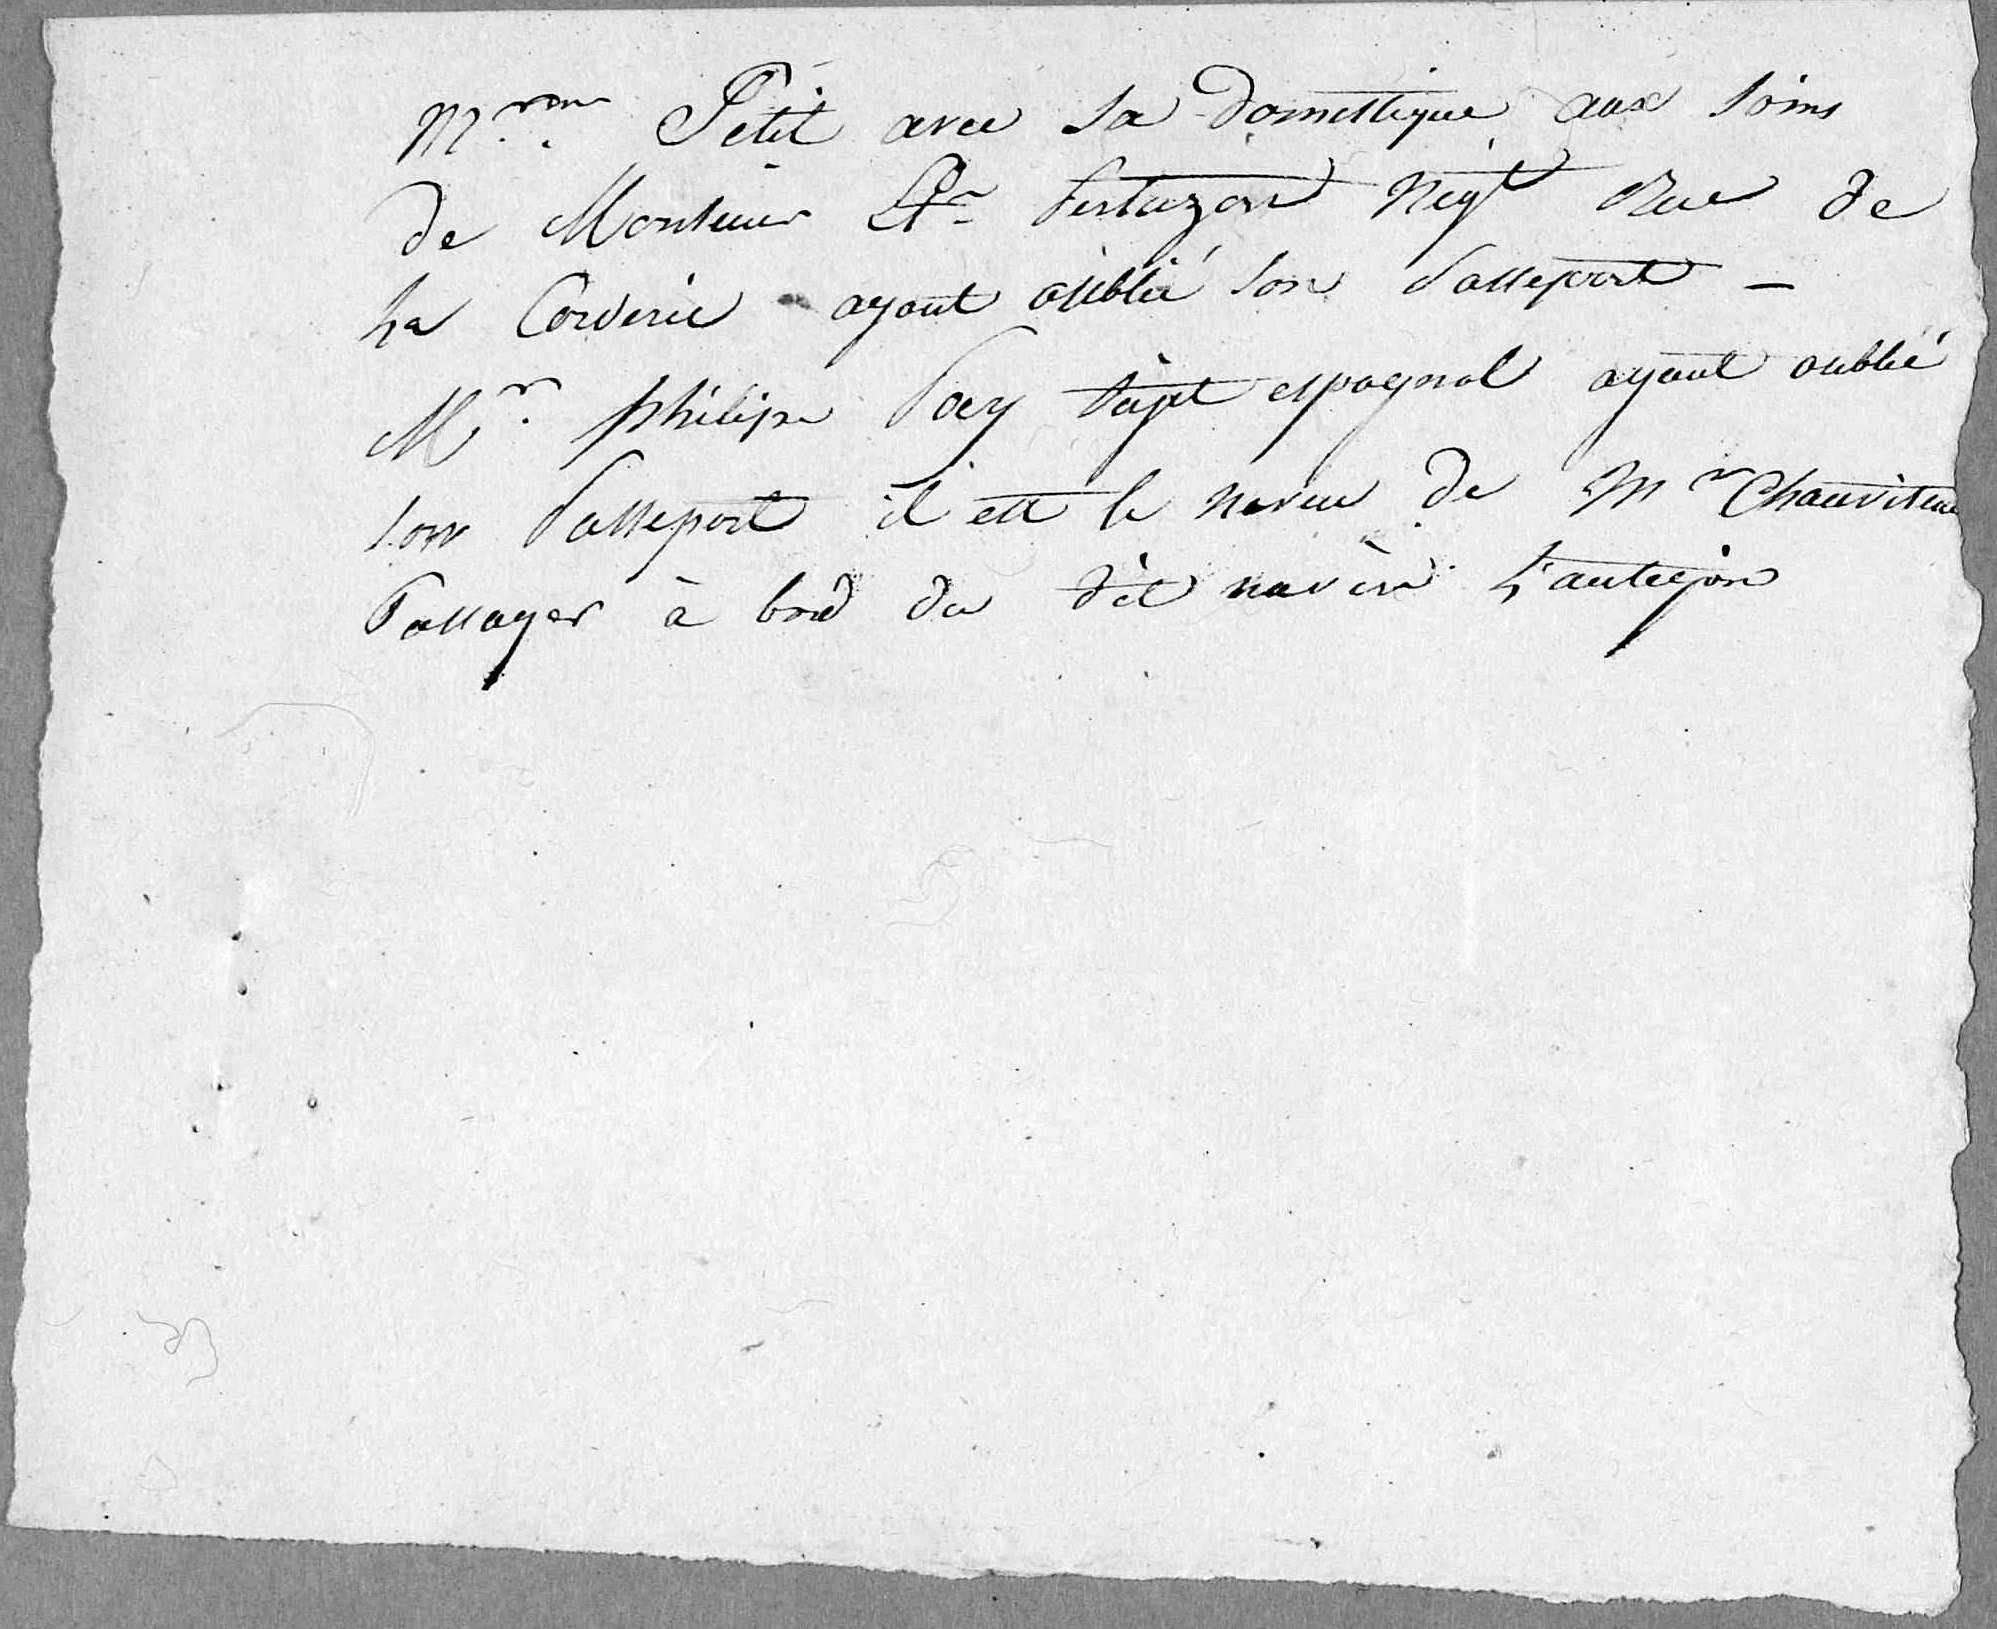 Mme Petit avec sa domestique aux soins
de Monsieur Négt Rue de
La Corderie ayant oublié son Passeport —
Mr philipe Pay Sujet espagnol ayant oublié
son Passeport il est le neveu de Mr Chauviteau
Passager à bord du dit navire L'antigone